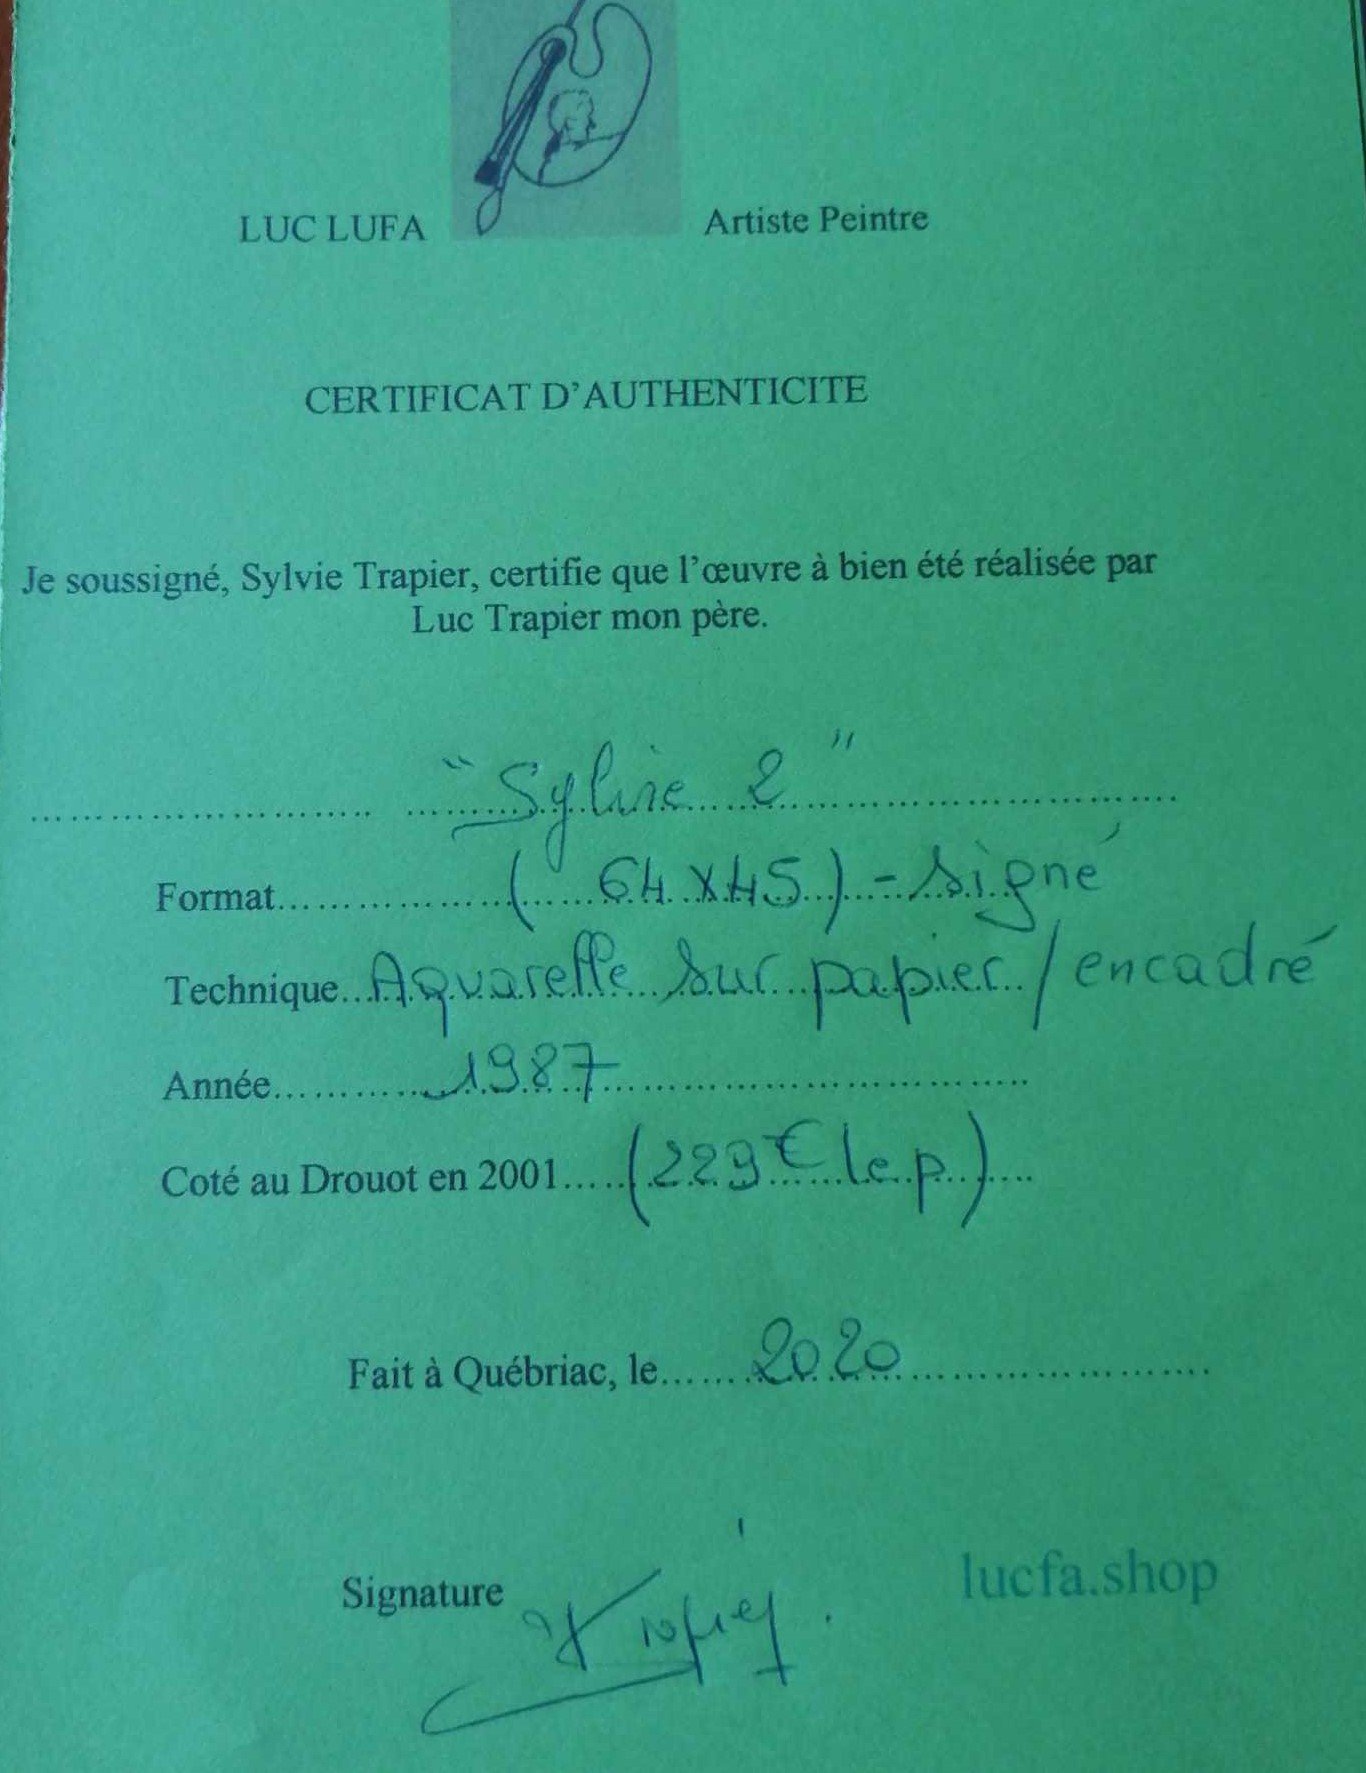 LUC LUFA Artiste Peintre
CERTIFICAT D'AUTHENTICITE
Je soussigné, Sylvie Trapier, certifie que l'œuvre à bien été réalisée par
Luc Trapier mon père.
"Sylvie 2"
Format (64x45) - signé
Technique Aquarelle sur papier / encadré
Année 1987
Coté au Drouot en 2001 (229€ le p)
Fait à Québriac, le 2020
Signature Trapier
lucfa.shop